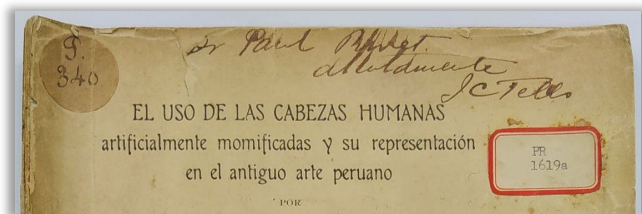 P.
340
Dr Paul Rivet.
atentamente
J C Tello
EL USO DE LAS CABEZAS HUMANAS
artificialmente momificadas y su representación
en el antiguo arte peruano
POR
PR
1619a